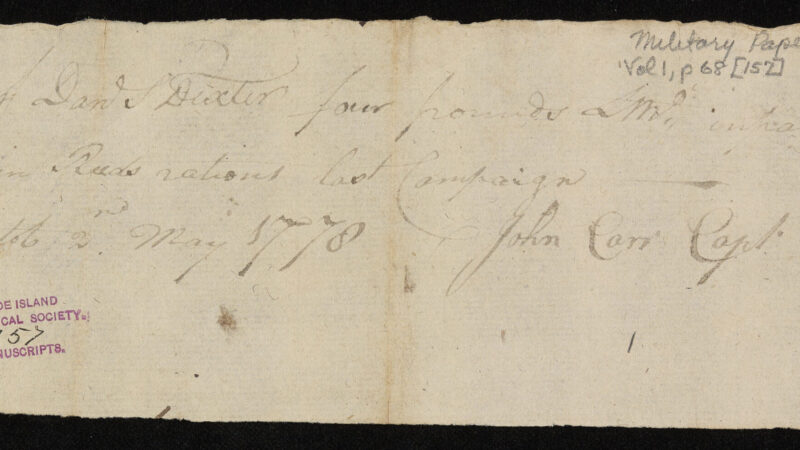 Military Pape
Vol 1, p 68 [152]
Danl S Dexter four pounds LMy in
in Reeds rations last Campaign
2nd May 1778 John Carr Capt
DE ISLAND
CAL SOCIETY.
157
NUSCRIPTS.